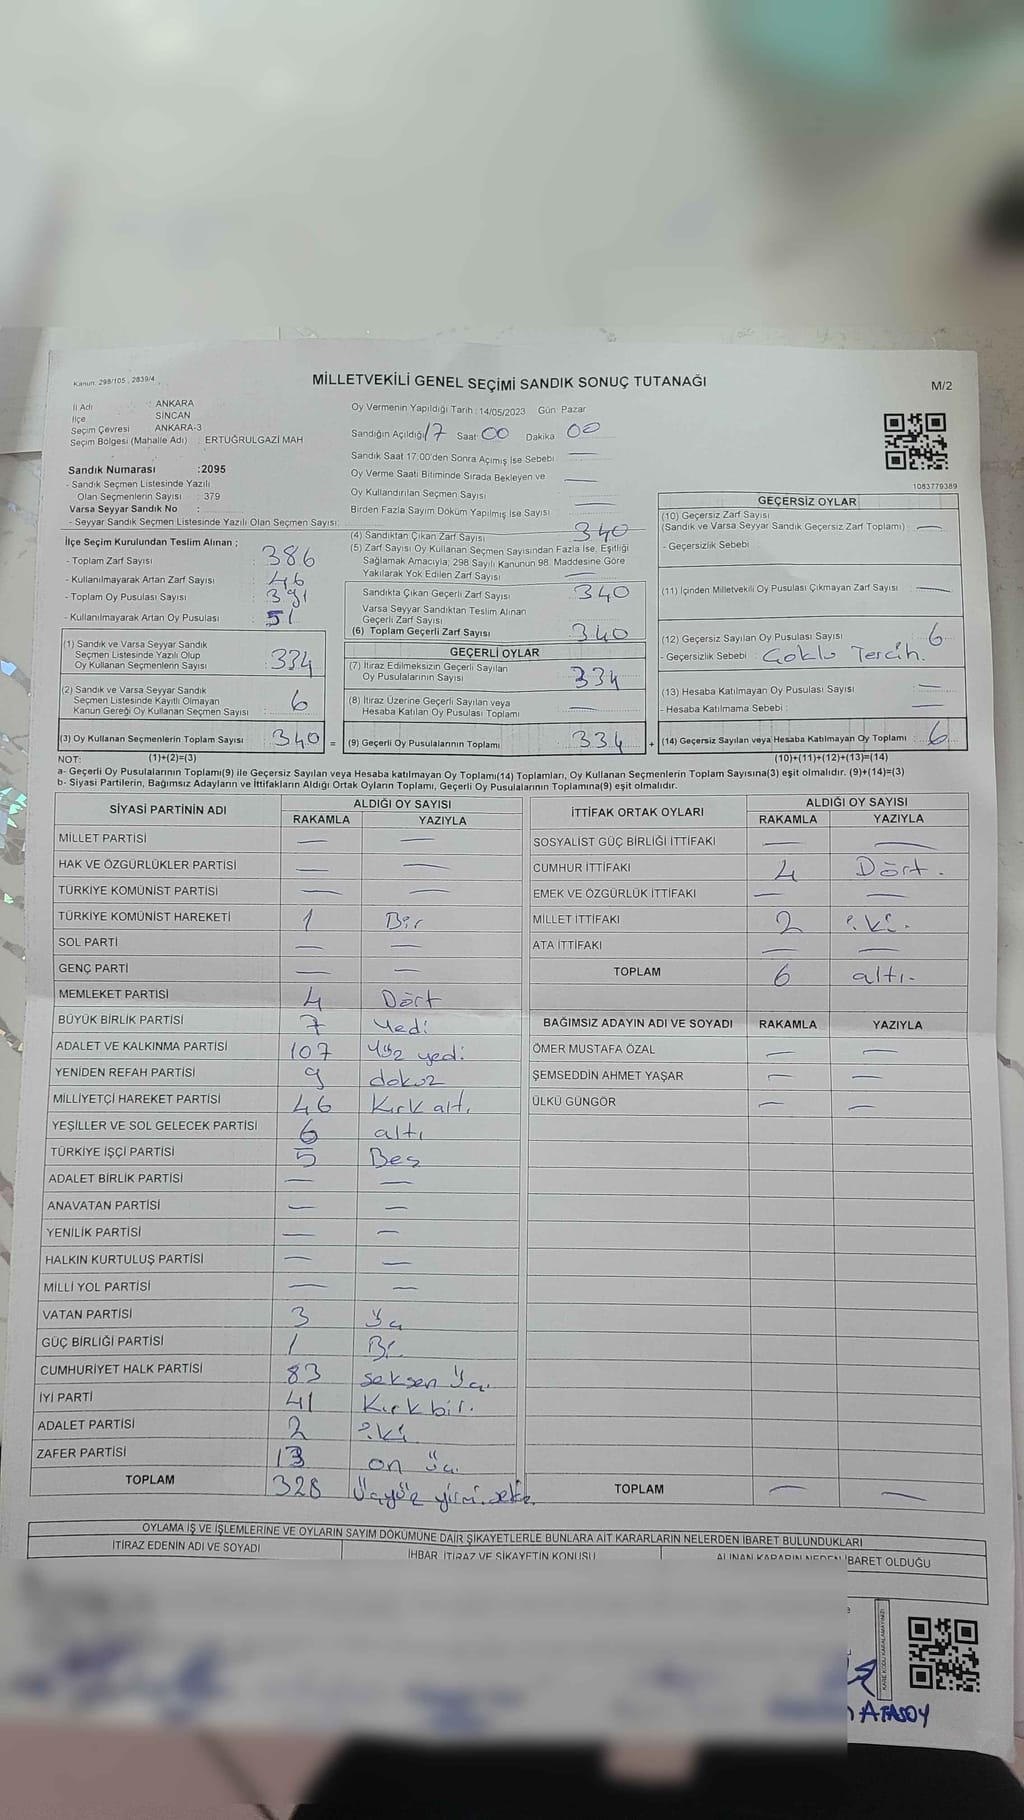 Kanun: 298/105 , 2839/4
MİLLETVEKİLİ GENEL SEÇİMİ SANDIK SONUÇ TUTANAĞI
M/2
İl Adı : ANKARA
İlçe : SİNCAN
Seçim Çevresi : ANKARA-3
Seçim Bölgesi (Mahalle Adı) : ERTUĞRULGAZİ MAH
Sandık Numarası :2095
- Sandık Seçmen Listesinde Yazılı
Olan Seçmenlerin Sayısı : 379
Varsa Seyyar Sandık No :
- Seyyar Sandık Seçmen Listesinde Yazılı Olan Seçmen Sayısı:
Oy Vermenin Yapıldığı Tarih : 14/05/2023 Gün: Pazar
Sandığın Açıldığı 17 Saat 00 Dakika 00
Sandık Saat 17:00'den Sonra Açımış İse Sebebi —
Oy Verme Saati Bitiminde Sırada Bekleyen ve
Oy Kullandırılan Seçmen Sayısı —
Birden Fazla Sayım Döküm Yapılmış İse Sayısı —
1083779389
İlçe Seçim Kurulundan Teslim Alınan ;
- Toplam Zarf Sayısı : 386
- Kullanılmayarak Artan Zarf Sayısı : 46
- Toplam Oy Pusulası Sayısı : 391
- Kullanılmayarak Artan Oy Pusulası : 51
(1) Sandık ve Varsa Seyyar Sandık
Seçmen Listesinde Yazılı Olup
Oy Kullanan Seçmenlerin Sayısı 334
(2) Sandık ve Varsa Seyyar Sandık
Seçmen Listesinde Kayıtlı Olmayan
Kanun Gereği Oy Kullanan Seçmen Sayısı 6
(3) Oy Kullanan Seçmenlerin Toplam Sayısı 340 =
(4) Sandıktan Çıkan Zarf Sayısı 340
(5) Zarf Sayısı Oy Kullanan Seçmen Sayısından Fazla İse, Eşitliği
Sağlamak Amacıyla; 298 Sayılı Kanunun 98. Maddesine Göre
Yakılarak Yok Edilen Zarf Sayısı —
Sandıkta Çıkan Geçerli Zarf Sayısı 340
Varsa Seyyar Sandıktan Teslim Alınan
Geçerli Zarf Sayısı —
(6) Toplam Geçerli Zarf Sayısı 340
GEÇERLİ OYLAR
(7) İtiraz Edilmeksizin Geçerli Sayılan
Oy Pusulalarının Sayısı 334
(8) İtiraz Üzerine Geçerli Sayılan veya
Hesaba Katılan Oy Pusulası Toplamı —
(9) Geçerli Oy Pusulalarının Toplamı 334 +
GEÇERSİZ OYLAR
(10) Geçersiz Zarf Sayısı
(Sandık ve Varsa Seyyar Sandık Geçersiz Zarf Toplamı) —
- Geçersizlik Sebebi
(11) İçinden Milletvekili Oy Pusulası Çıkmayan Zarf Sayısı —
(12) Geçersiz Sayılan Oy Pusulası Sayısı 6
- Geçersizlik Sebebi : Çoklu Tercih.
(13) Hesaba Katılmayan Oy Pusulası Sayısı —
- Hesaba Katılmama Sebebi : —
(14) Geçersiz Sayılan veya Hesaba Katılmayan Oy Toplamı 6
NOT: (1)+(2)=(3) (10)+(11)+(12)+(13)=(14)
a- Geçerli Oy Pusulalarının Toplamı(9) ile Geçersiz Sayılan veya Hesaba katılmayan Oy Toplamı(14) Toplamları, Oy Kullanan Seçmenlerin Toplam Sayısına(3) eşit olmalıdır. (9)+(14)=(3)
b- Siyasi Partilerin, Bağımsız Adayların ve İttifakların Aldığı Ortak Oyların Toplamı, Geçerli Oy Pusulalarının Toplamına(9) eşit olmalıdır.
SİYASİ PARTİNİN ADI ALDIĞI OY SAYISI
RAKAMLA YAZIYLA
MİLLET PARTİSİ — —
HAK VE ÖZGÜRLÜKLER PARTİSİ — —
TÜRKİYE KOMÜNİST PARTİSİ — —
TÜRKİYE KOMÜNİST HAREKETİ 1 Bir
SOL PARTİ — —
GENÇ PARTİ — —
MEMLEKET PARTİSİ 4 Dört
BÜYÜK BİRLİK PARTİSİ 7 Yedi
ADALET VE KALKINMA PARTİSİ 107 Yüz yedi
YENİDEN REFAH PARTİSİ 9 dokuz
MİLLİYETÇİ HAREKET PARTİSİ 46 Kırk altı
YEŞİLLER VE SOL GELECEK PARTİSİ 6 altı
TÜRKİYE İŞÇİ PARTİSİ 5 Beş
ADALET BİRLİK PARTİSİ — —
ANAVATAN PARTİSİ — —
YENİLİK PARTİSİ — —
HALKIN KURTULUŞ PARTİSİ — —
MİLLİ YOL PARTİSİ — —
VATAN PARTİSİ 3 Üç
GÜÇ BİRLİĞİ PARTİSİ 1 Bir
CUMHURİYET HALK PARTİSİ 83 seksen üç.
İYİ PARTİ 41 Kırk bir.
ADALET PARTİSİ 2 iki
ZAFER PARTİSİ 13 on üç.
TOPLAM 328 Üçyüz yirmi sekiz.
İTTİFAK ORTAK OYLARI ALDIĞI OY SAYISI
RAKAMLA YAZIYLA
SOSYALİST GÜÇ BİRLİĞİ İTTİFAKI — —
CUMHUR İTTİFAKI 4 Dört.
EMEK VE ÖZGÜRLÜK İTTİFAKI — —
MİLLET İTTİFAKI 2 iki.
ATA İTTİFAKI — —
TOPLAM 6 altı.
BAĞIMSIZ ADAYIN ADI VE SOYADI RAKAMLA YAZIYLA
ÖMER MUSTAFA ÖZAL — —
ŞEMSEDDİN AHMET YAŞAR — —
ÜLKÜ GÜNGÖR — —
TOPLAM — —
OYLAMA İŞ VE İŞLEMLERİNE VE OYLARIN SAYIM DÖKÜMÜNE DAİR ŞİKAYETLERLE BUNLARA AİT KARARLARIN NELERDEN İBARET BULUNDUKLARI
İTİRAZ EDENİN ADI VE SOYADI İHBAR, İTİRAZ VE ŞİKAYETİN KONUSU ALINAN KARARIN NEDEN İBARET OLDUĞU
KARE KODU KARALAMAYINIZ!
ATASOY